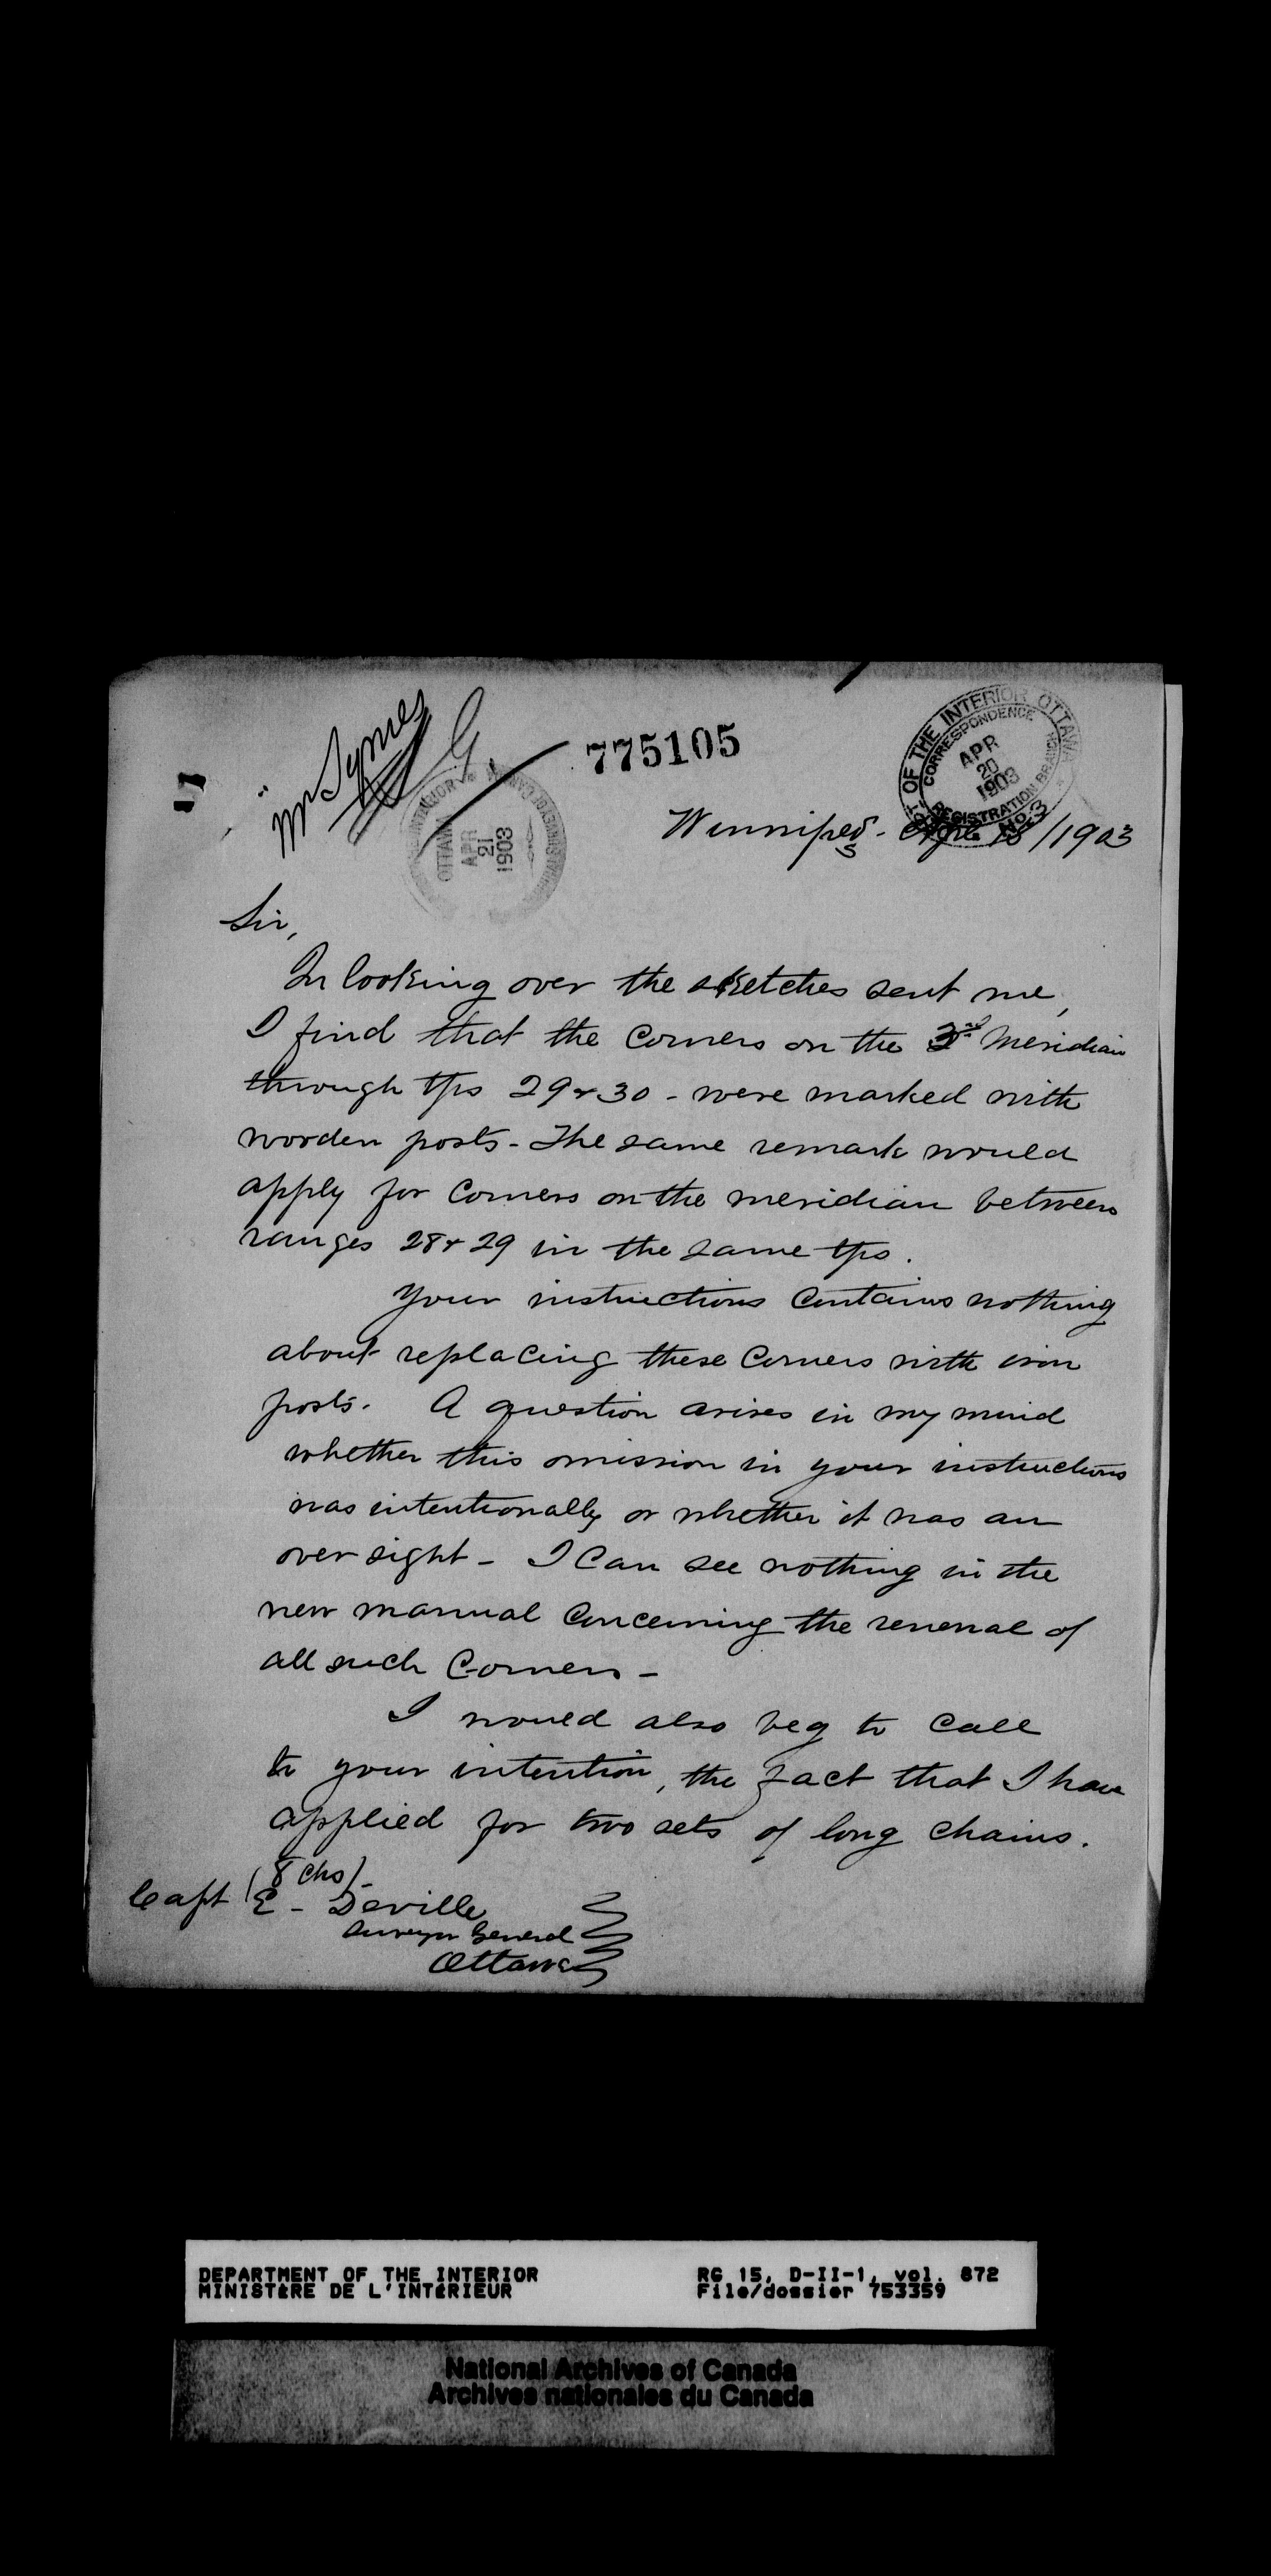 Mr Symes
775105
DEPT OF THE INTERIOR OTTAWA
CORRESPONDENCE
APR
20
1903
REGISTRATION BRANCH
No 3
OTTAWA
APR
21
1903
Winnipeg - Apl 18/1903
Sir,
In looking over the sketches sent me,
I find that the Corners on the 3rd Meridian
through tps 29 & 30 - were marked with
worden posts - The same remark would
apply for Corners on the meridian between
ranges 28 & 29 in the same tps.
Your instructions Contains nothing
about replacing these Corners with iron
posts. A question arises in my mind
whether this omission in your instructions
was intentionally or whether it was an
over sight - I Can see nothing in the
new manual Concerning the renewal of
all such Corners -
I would also beg to Call
to your intention, the fact that I have
applied for two sets of long chains.
(8 chs) -
Capt E - Deville
Surveyor General
Ottawa
DEPARTMENT OF THE INTERIOR
MINISTÈRE DE L'INTÉRIEUR
RG 15, D-II-1, vol. 872
File/dossier 753359
National Archives of Canada
Archives nationales du Canada